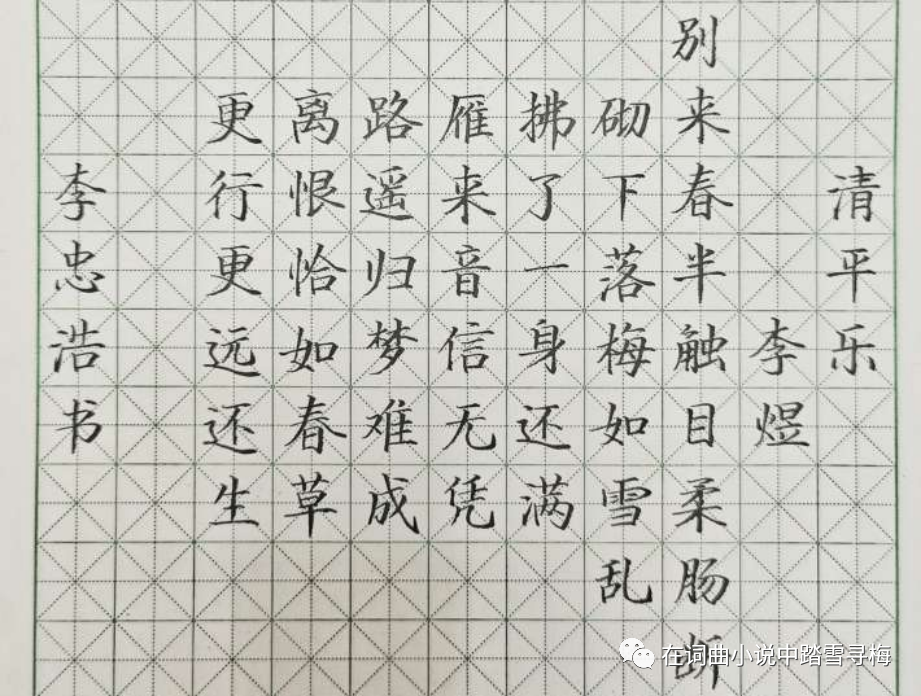 清平乐
李煜
别来春半触目柔肠断
砌下落梅如雪乱
拂了一身还满
雁来音信无凭
路遥归梦难成
离恨恰如春草
更行更远还生
李忠浩书
在词曲小说中踏雪寻梅